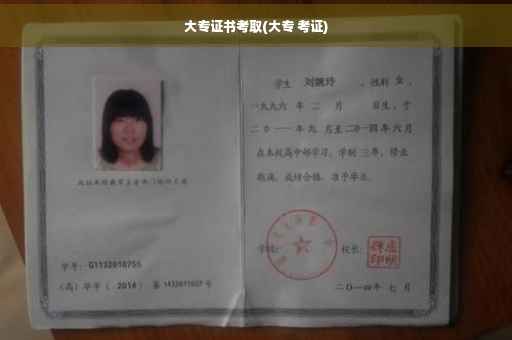 大专证书考取(大专 考证)
学生 刘婉玲 ,性别 女 ,
一九九六 年 二 月 日生,于
二〇一一年九 月至二〇一四年六月
在本校高中部学习,学制 三年,修业
期满,成绩合格,准予毕业。
学号: G1132010755
(高)毕字( 2014 )第 1432011607 号
学校:
校长:
二〇一四年 七 月